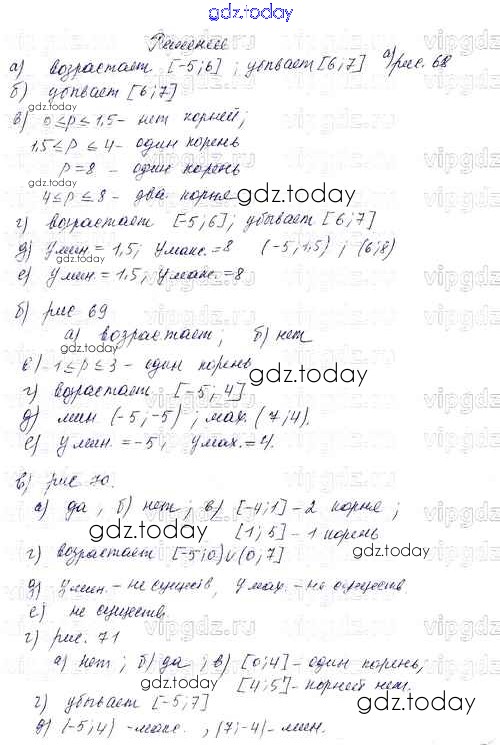 gdz.today
Решение
а) возрастает [-5;6] ; убывает [6;7] а) рис. 68
б) убывает [6;7]
gdz.today
в) 0≤p≤1,5 - нет корней;
1,5≤p≤4 - один корень
p=8 - один корень
4≤p≤8 - два корня
gdz.today
г) возрастает [-5;6]; убывает [6;7]
д) yмин.=1,5; yмакс.=8 (-5;1,5) ; (6;8)
е) yмин.=1,5; yмакс.=8
gdz.today
б) рис 69
а) возрастает; б) нет
gdz.today
в) -1≤p≤3 - один корень
gdz.today
г) возрастает [-5;4]
д) мин (-5;-5) ; мах. (7;4).
е) yмин.=-5, yмах.=4.
gdz.today
в) рис 70.
а) да, б) нет; в) [-4;1] - 2 корня;
[1;5] - 1 корень
gdz.today
г) возрастает [-5;0)∪(0;7]
gdz.today
д) yмин. - не существ, yмах. - не существ.
е) не существ.
gdz.today
г) рис. 71
а) нет; б) да; в) [0;4] - один корень;
[4;5] - корней нет.
gdz.today
г) убывает [-5;7]
gdz.today
д) (-5;4) - макс., (7;-4) - мин.